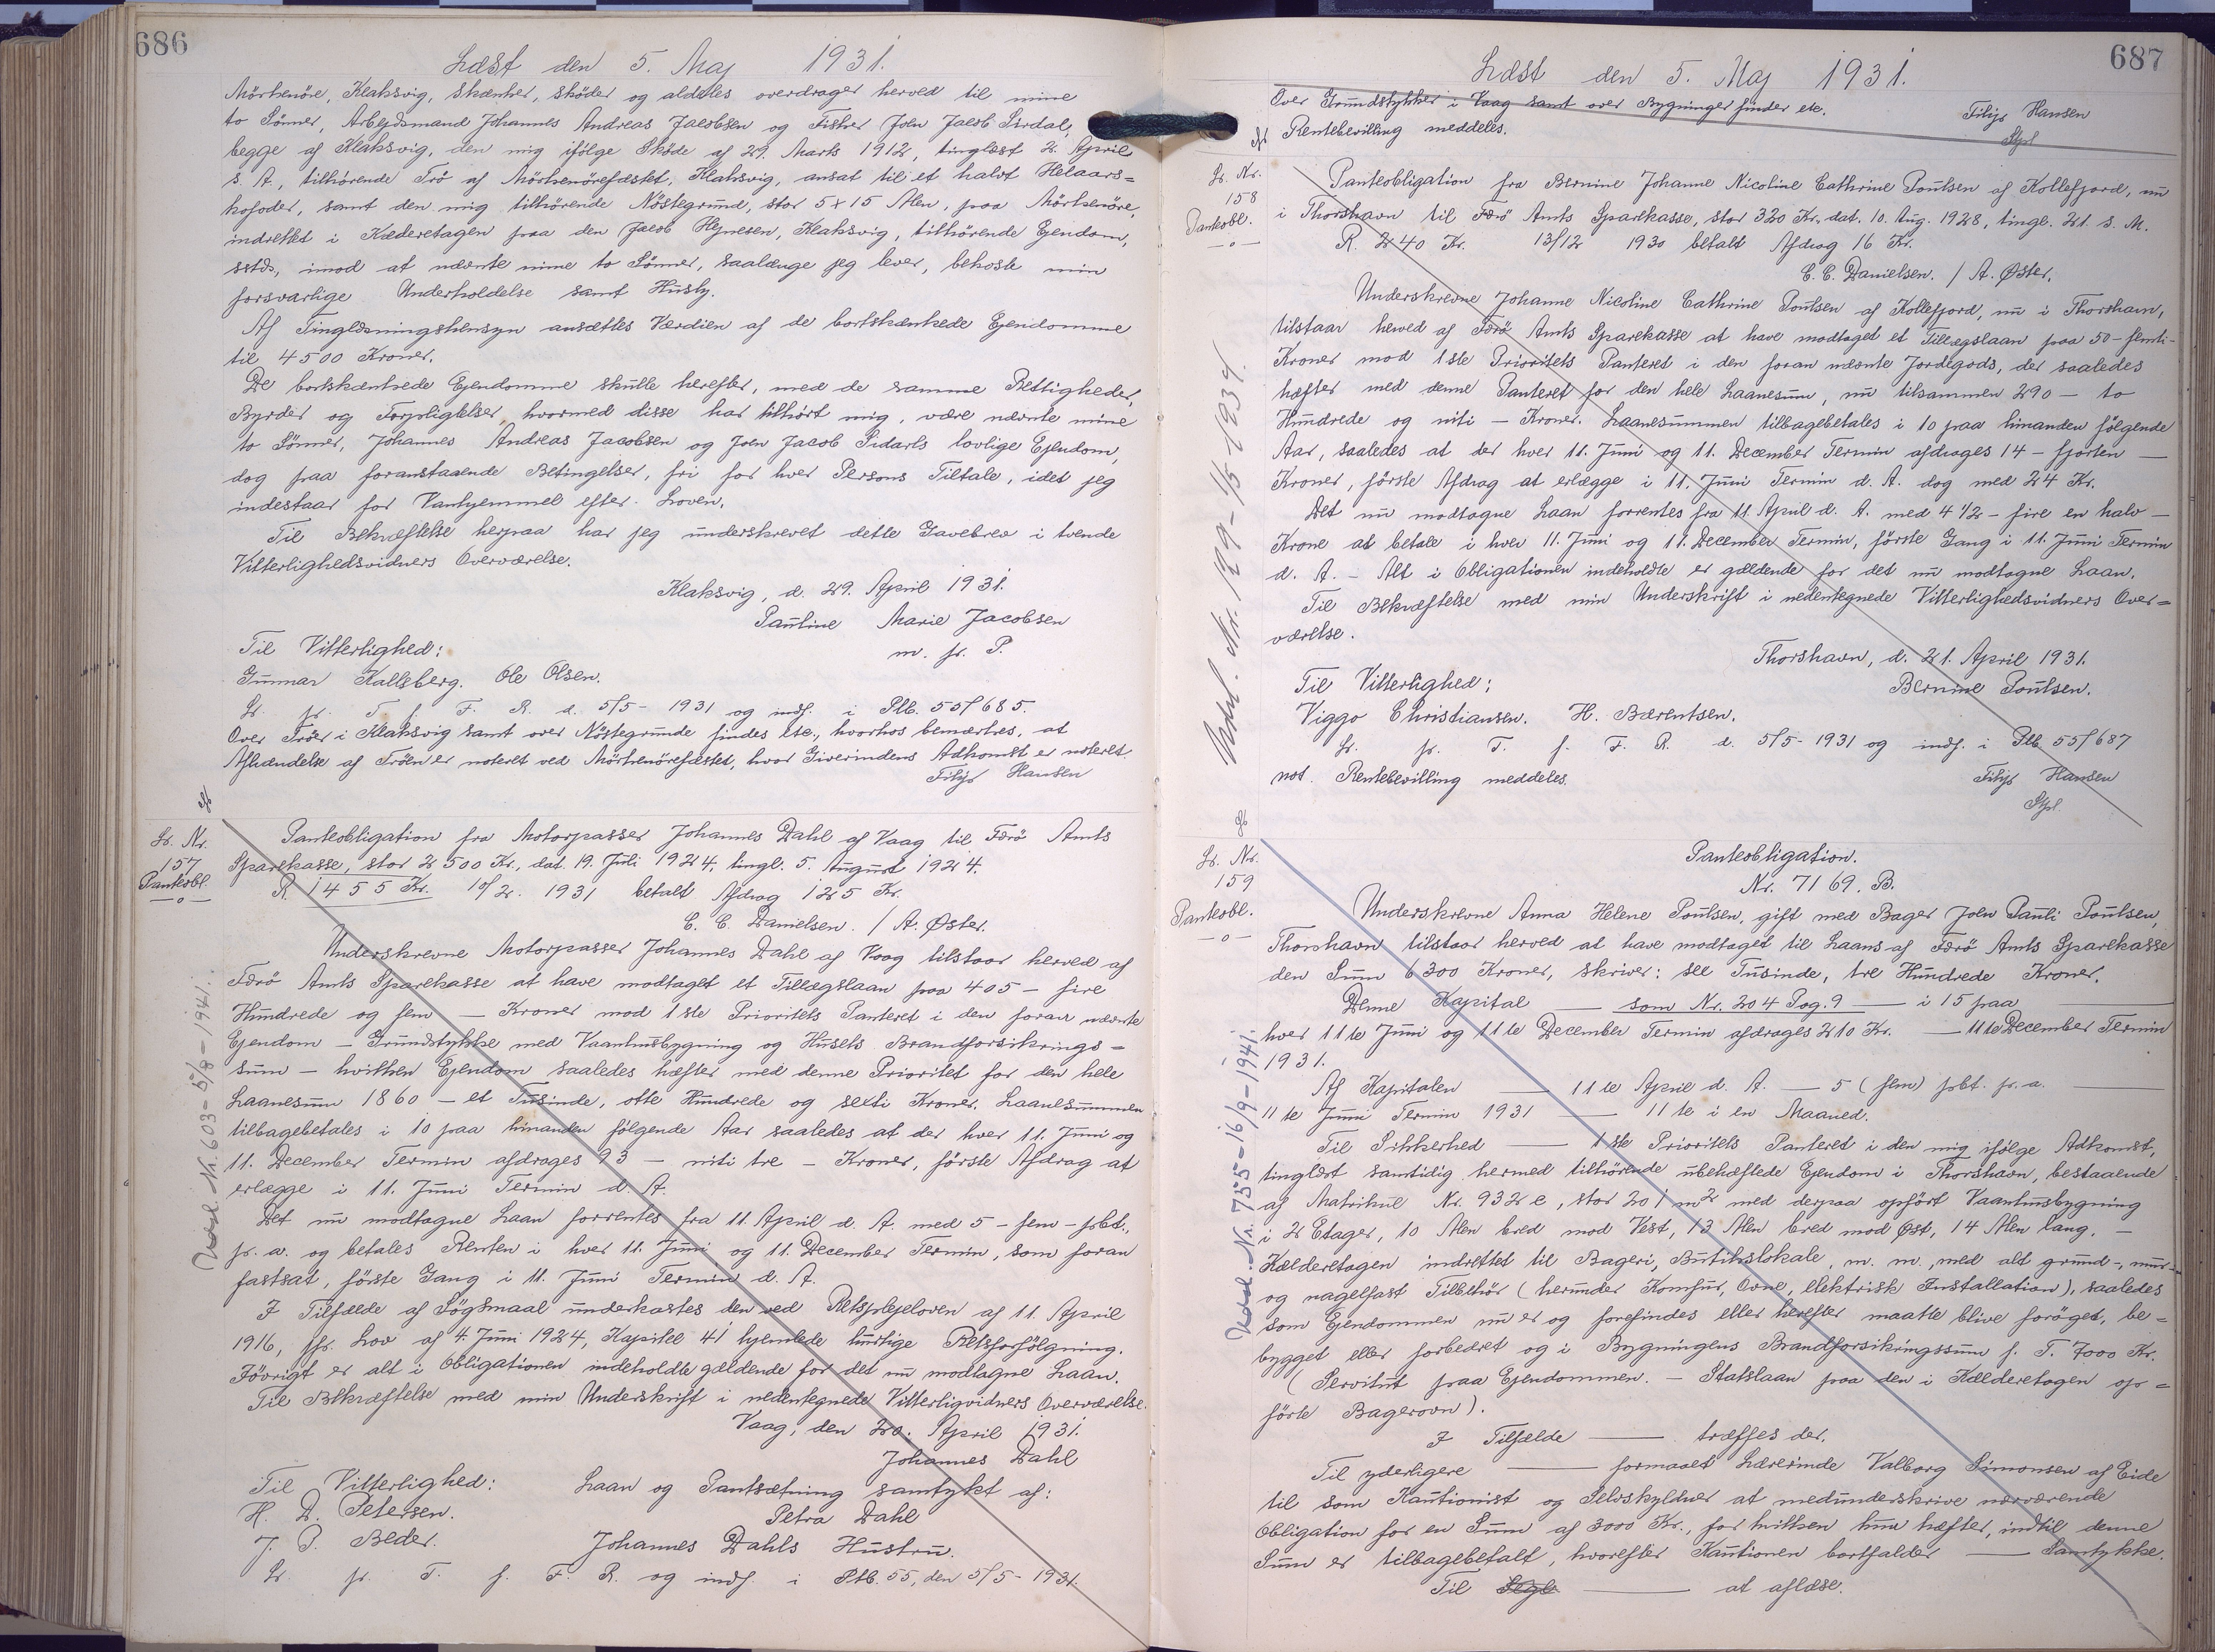 686
Læst den 5. Maj 1931.
Mörkenöre, Klaksvig, skænker, skøder og aldeles overdrager herved til mine
to Sønner, Arbejdsmand Johannes Andreas Jacobsen og Fisker Joen Jacob
begge af Klaksvig, den mig ifölge Skøde af 29. Marts 1912, tinglæst 2. April
s. A., tilhørende Trö af Mörkenörefæstet, Klaksvig, ansat til et halvt Helaars=
kofoder, samt den mig tilhörende Nöstegrund, stor 5 x 15 Alen, paa Mörkenöre,
indrettet i Kæderetagen paa den Jacob Hejnesen, Klaksvig, tilhörende Ejendom,
sstds, imod at nævnte mine to Sönner, saalænge jeg lever, bekoste min
forsvarlige Underholdelse samt Husly.
Af Tinglæsningshensyn ansættes Værdien af de bortskænkede Ejendomme
til 4500 Kroner.
De bortskænkede Ejendomme skulle herefter, med de samme Rettigheder,
Byrder og Forpligtelser, hvormed disse har tilhört mig, være nævnte mine
to Sönner, Johannes Andreas Jacobsen og Joen Jacob Sidarls lovlige Ejendom,
dog paa foranstaaende Betingelser, fri for hver Persons Tiltale, idet jeg
indestaar for Vanhjemmel efter Loven.
Til Bekræftelse herpaa har jeg underskrevet dette Gavebrev i tvende
Vitterlighedsvidners Overværelse.
Klaksvig, d. 29. April 1931.
Pauline Marie Jacobsen
m. p. P.
Til Vitterlighed:
Gunnar Kallsberg. Ole Olsen.
Lr. pr. T. f. F. R. d. 5/5- 1931 og indf. i Ptb. 55/685.
Over Tröer i Klaksvig samt over Nöstegrunde findes etc., hvorhos bemærkes, at
Afhændelse af Tröen er noteret ved Mörkenörefæstet, hvor Giverindens Adkomst er noteret.
Filip Hansen
Lr. Nr.
157
Panteobl.
—o—
Panteobligation fra Motorpasser Johannes Dahl af Vaag til Færö Amts
Sparekasse, stor 2500 Kr., dat. 19. Juli 1924, tingl. 5. August 1924.
R. 1455 Kr. 10/2. 1931 betalt Afdrag 125 Kr.
C. C. Danielsen. / A. Øster.
Underskrevne Motorpasser Johannes Dahl af Vaag tilstaar herved af
Færö Amts Sparekasse at have modtaget et Tillægslaan paa 405 - fire
Hundrede og fem — Kroner mod 1ste Prioritets Panteret i den foran nævnte
Ejendom - Grundstykke med Vaaningsbygning og Husets Brandforsikrings=
sum - hvilken Ejendom saaledes hæfter med denne Prioritet for den hele
Laanesum 1860 - et Tusinde, otte Hundrede og sexti Kroner. Laanesummen
tilbagebetales i 10 paa hinanden fölgende Aar saaledes at der hver 11. Juni og
11. December Termin afdrages 93 - niti tre - Kroner, förste Afdrag at
erlægge i 11. Juni Termin d. A.
Det nu modtagne Laan forrentes fra 11. April d. A. med 5 - fem - pbt.
pr. a. og betales Renten i hver 11. Juni og 11. December Termin, som foran
fastsat, förste Gang i 11. Juni Termin d. A.
I Tilfælde af Sögsmaal underkastes den ved Retsplejeloven af 11. April
1916, jfr. Lov af 4. Juni 1924, Kapitel 41 hjemlede hurtige Retsforfölgning.
Jövrigt er alt i Obligationen indeholdte gældende for det nu modtagne Laan.
Til Bekræftelse med min Underskrift i nedentegnede Vitterligvidners Overværelse.
Vaag, den 20. April 1931.
Johannes Dahl
Til Vitterlighed: Laan og Pantsætning samtykt af:
H. D. Petersen. Petra Dahl
J. P. Beder. Johannes Dahls Hustru.
Lr. pr. T. f. F. R. og indf. i Ptb. 55, den 5/5- 1931.
Udsl. Nr. 603 - 5/8 - 1941.
687
Læst den 5. Maj 1931.
Over Grundstykker i Vaag samt over Bygninger findes etc.
Rentebevilling meddeles.
Filip Hansen
Lr. Nr.
158
Panteobl.
—o—
Panteobligation fra Bernine Johanne Nicoline Cathrine Poulsen af Kollefjord, nu
i Thorshavn til Færö Amts Sparekasse, stor 320 Kr. dat. 10. Aug. 1928, tingl. 21. s. M.
R. 240 Kr. 13/12 1930 betalt Afdrag 16 Kr.
C. C. Danielsen. / A. Øster.
Underskrevne Johanne Nicoline Cathrine Poulsen af Kollefjord, nu i Thorshavn,
tilstaar herved af Færö Amts Sparekasse at have modtaget et Tillægslaan paa 50 - femti -
Kroner mod 1ste Prioritets Panteret i den foran nævnte Jordegods, der saaledes
hæfter med denne Panteret for den hele Laanesum, nu tilsammen 290 - to
Hundrede og niti - Kroner. Laanesummen tilbagebetales i 10 paa hinanden fölgende
Aar, saaledes at der hver 11. Juni og 11. December Termin afdrages 14 - fjorten —
Kroner, förste Afdrag at erlægge i 11. Juni Termin d. A. dog med 24 Kr.
Det nu modtagne Laan forrentes fra 11 April d. A. med 4 1/2 - fire en halv —
Krone at betale i hver 11. Juni og 11. December Termin, förste Gang i 11. Juni Termin
d. A. - Alt i Obligationen indeholdte er gældende for det nu modtagne Laan.
Til Bekræftelse med min Underskrift i nedentegnede Vitterlighedsvidners Over=
værelse.
Thorshavn, d. 21. April 1931.
Til Vitterlighed; Bernine Poulsen.
Viggo Christiansen. H. Bærentsen.
Lr. pr. T. f. F. R. d. 5/5- 1931 og indf. i Ptb 55/687
not. Rentebevilling meddeles.
Filip Hansen
Udsl. Nr. 129 - 1/5 - 1934.
Lr. Nr.
159
Panteobl.
—o—
Panteobligation.
Nr. 7169. B.
Underskrevne Anna Helene Poulsen, gift med Bager Joen Pauli Poulsen,
Thorshavn tilstaar herved at have modtaget til Laans af Færö Amts Sparekasse
den Sum 6300 Kroner, skriver: sex Tusinde, tre Hundrede Kroner.
Denne Kapital — som Nr. 204 Pag. 9 — i 15 paa
hver 11te Juni og 11te December Termin afdrages 210 Kr. — 11te December Termin
1931.
Af Kapitalen — 11te April d. A. — 5 (fem) pbt. pr. a.
11te Juni Termin 1931 — 11te i en Maaned.
Til Sikkerhed — 1ste Prioritets Panteret i den mig ifölge Adkomst,
tinglæst samtidig hermed tilhörende ubehæftede Ejendom i Thorshavn, bestaaende
af Matrikul Nr. 932 e, stor 201 m2 med derpaa opfört Vaaningsbygning
i 2 Etager, 10 Alen bred mod Vest, 13 Alen bred mod Øst, 14 Alen lang. —
Kælderetagen indrettet til Bageri, Butikslokale, m. m., med alt grund-, mur-
og nagelfast Tilbehör (herunder Komfur, Ovne, elektrisk Installation), saaledes
som Ejendommen nu er og forefindes eller herefter maatte blive foröget, be=
bygget eller forbedret og i Bygningens Brandforsikringssum f. T. 7000 Kr.
(Servitut paa Ejendommen. - Statslaan paa den i Kælderetagen op=
förte Bagerovn).
I Tilfælde — træffes der.
Til yderligere — formaaet Lærerinde Valborg Simonsen af Eide
til som Kautionist og Selvskyldner at medunderskrive nærværende
Obligation for en Sum af 3000 Kr., for hvilken hun hæfter, indtil denne
Sum er tilbagebetalt, hvorefter Kautionen bortfalder — Samtykke.
Til — at aflæse.
Udsl. Nr. 735 - 16/9 - 1941.